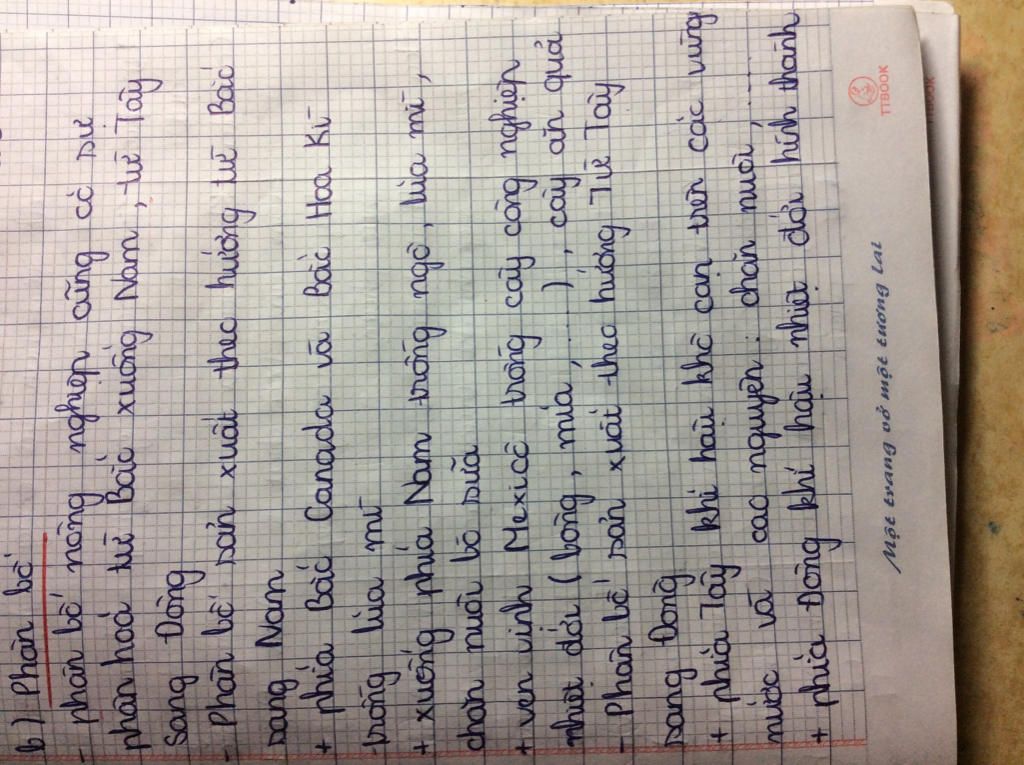 b) Phân bố
- phân bố nông nghiệp cũng có sự
phân hoá từ Bắc xuống Nam, từ Tây
Sang Đông
- Phân bố sản xuất theo hướng từ Bắc
sang Nam
+ phía Bắc Canada và Bắc Hoa Kì
trồng lúa mì
+ xuống phía Nam trồng ngô, lúa mì,
chăn nuôi bò sữa
+ ven vịnh Mexicô trồng cây công nghiệp
nhiệt đới (bông, mía, ......), cây ăn quả
- Phân bố sản xuất theo hướng Từ Tây
sang Đông
+ phía Tây khí hậu khô cạn trên các vùng
núcc và cao nguyên: chăn nuôi, .....
+ phía Đông khí hậu nhiệt đới hình thành
TTBOOK
Một trang vở một tương lai
TTBOOK